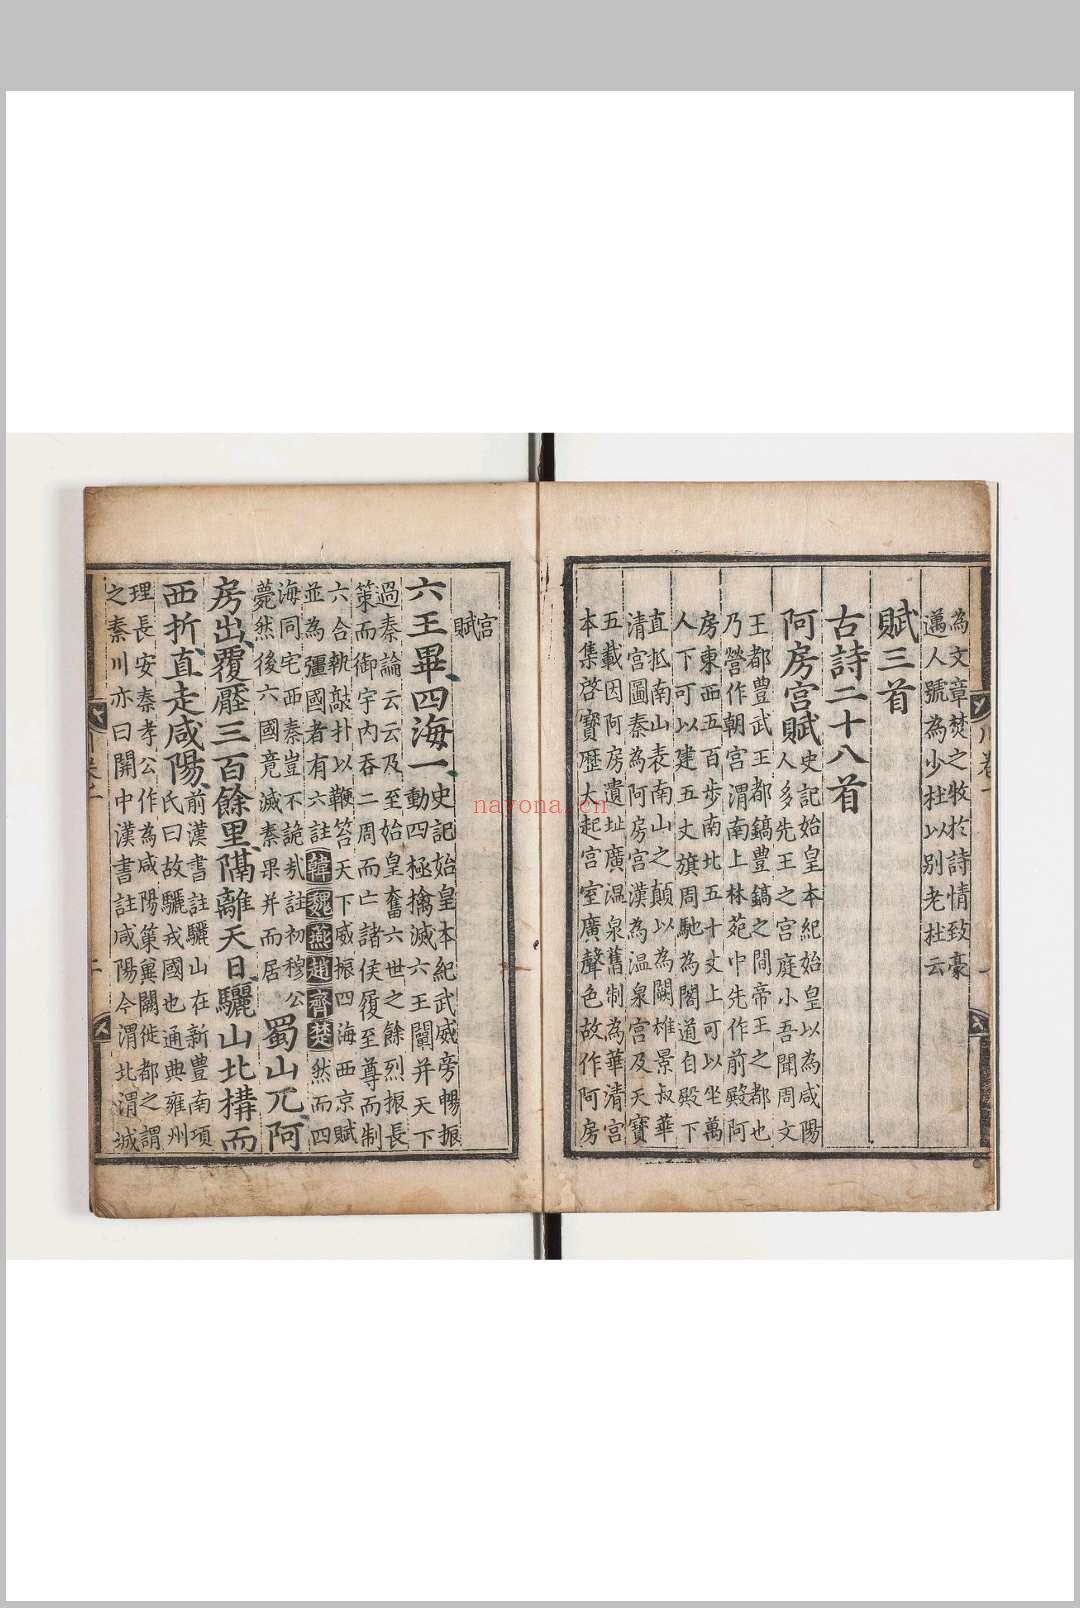 為文章焚之牧於詩情致豪
邁人號為少杜以别老杜云
賦三首
古詩二十八首
阿房宫賦
史記始皇本紀始皇以為咸陽
人多先王之宫庭小吾聞周文
王都豊武王都鎬豊鎬之間帝王之都也
乃營作朝宫渭南上林苑中先作前殿阿
房東西五百步南北五十丈上可以坐萬
人下可以建五丈旗周馳為閣道自殿下
直抵南山表南山之顛以為闕雄景叔華
清宫圖秦為阿房宫漢為温泉宫及天寶
五載因阿房遺址廣温泉舊制為華清宫
本集啓寳歷大起宫室廣聲色故作阿房
宫
賦
六王畢四海一
史記始皇本紀武威旁暢振
動四極擒滅六王闡并天下
過秦論云云及至始皇奮六世之餘烈振長
策而御宇内吞二周而亡諸侯履至尊而制
六合執敲扑以鞭笞天下威振四海西京賦
並為彊國者有六註韓魏燕趙齊楚然而四
海同宅西秦豈不詭哉註初穆公
薨然後六國竟滅秦果并而居
蜀山兀阿
房出覆壓三百餘里隔離天日驪山北搆而
西折直走咸陽
前漢書註驪山在新豊南項
氏曰故驪戎國也通典雍州
理長安秦孝公作為咸陽築冀闕徙都之謂
之秦川亦曰關中漢書註咸陽今渭北渭城
二
nayona.cn